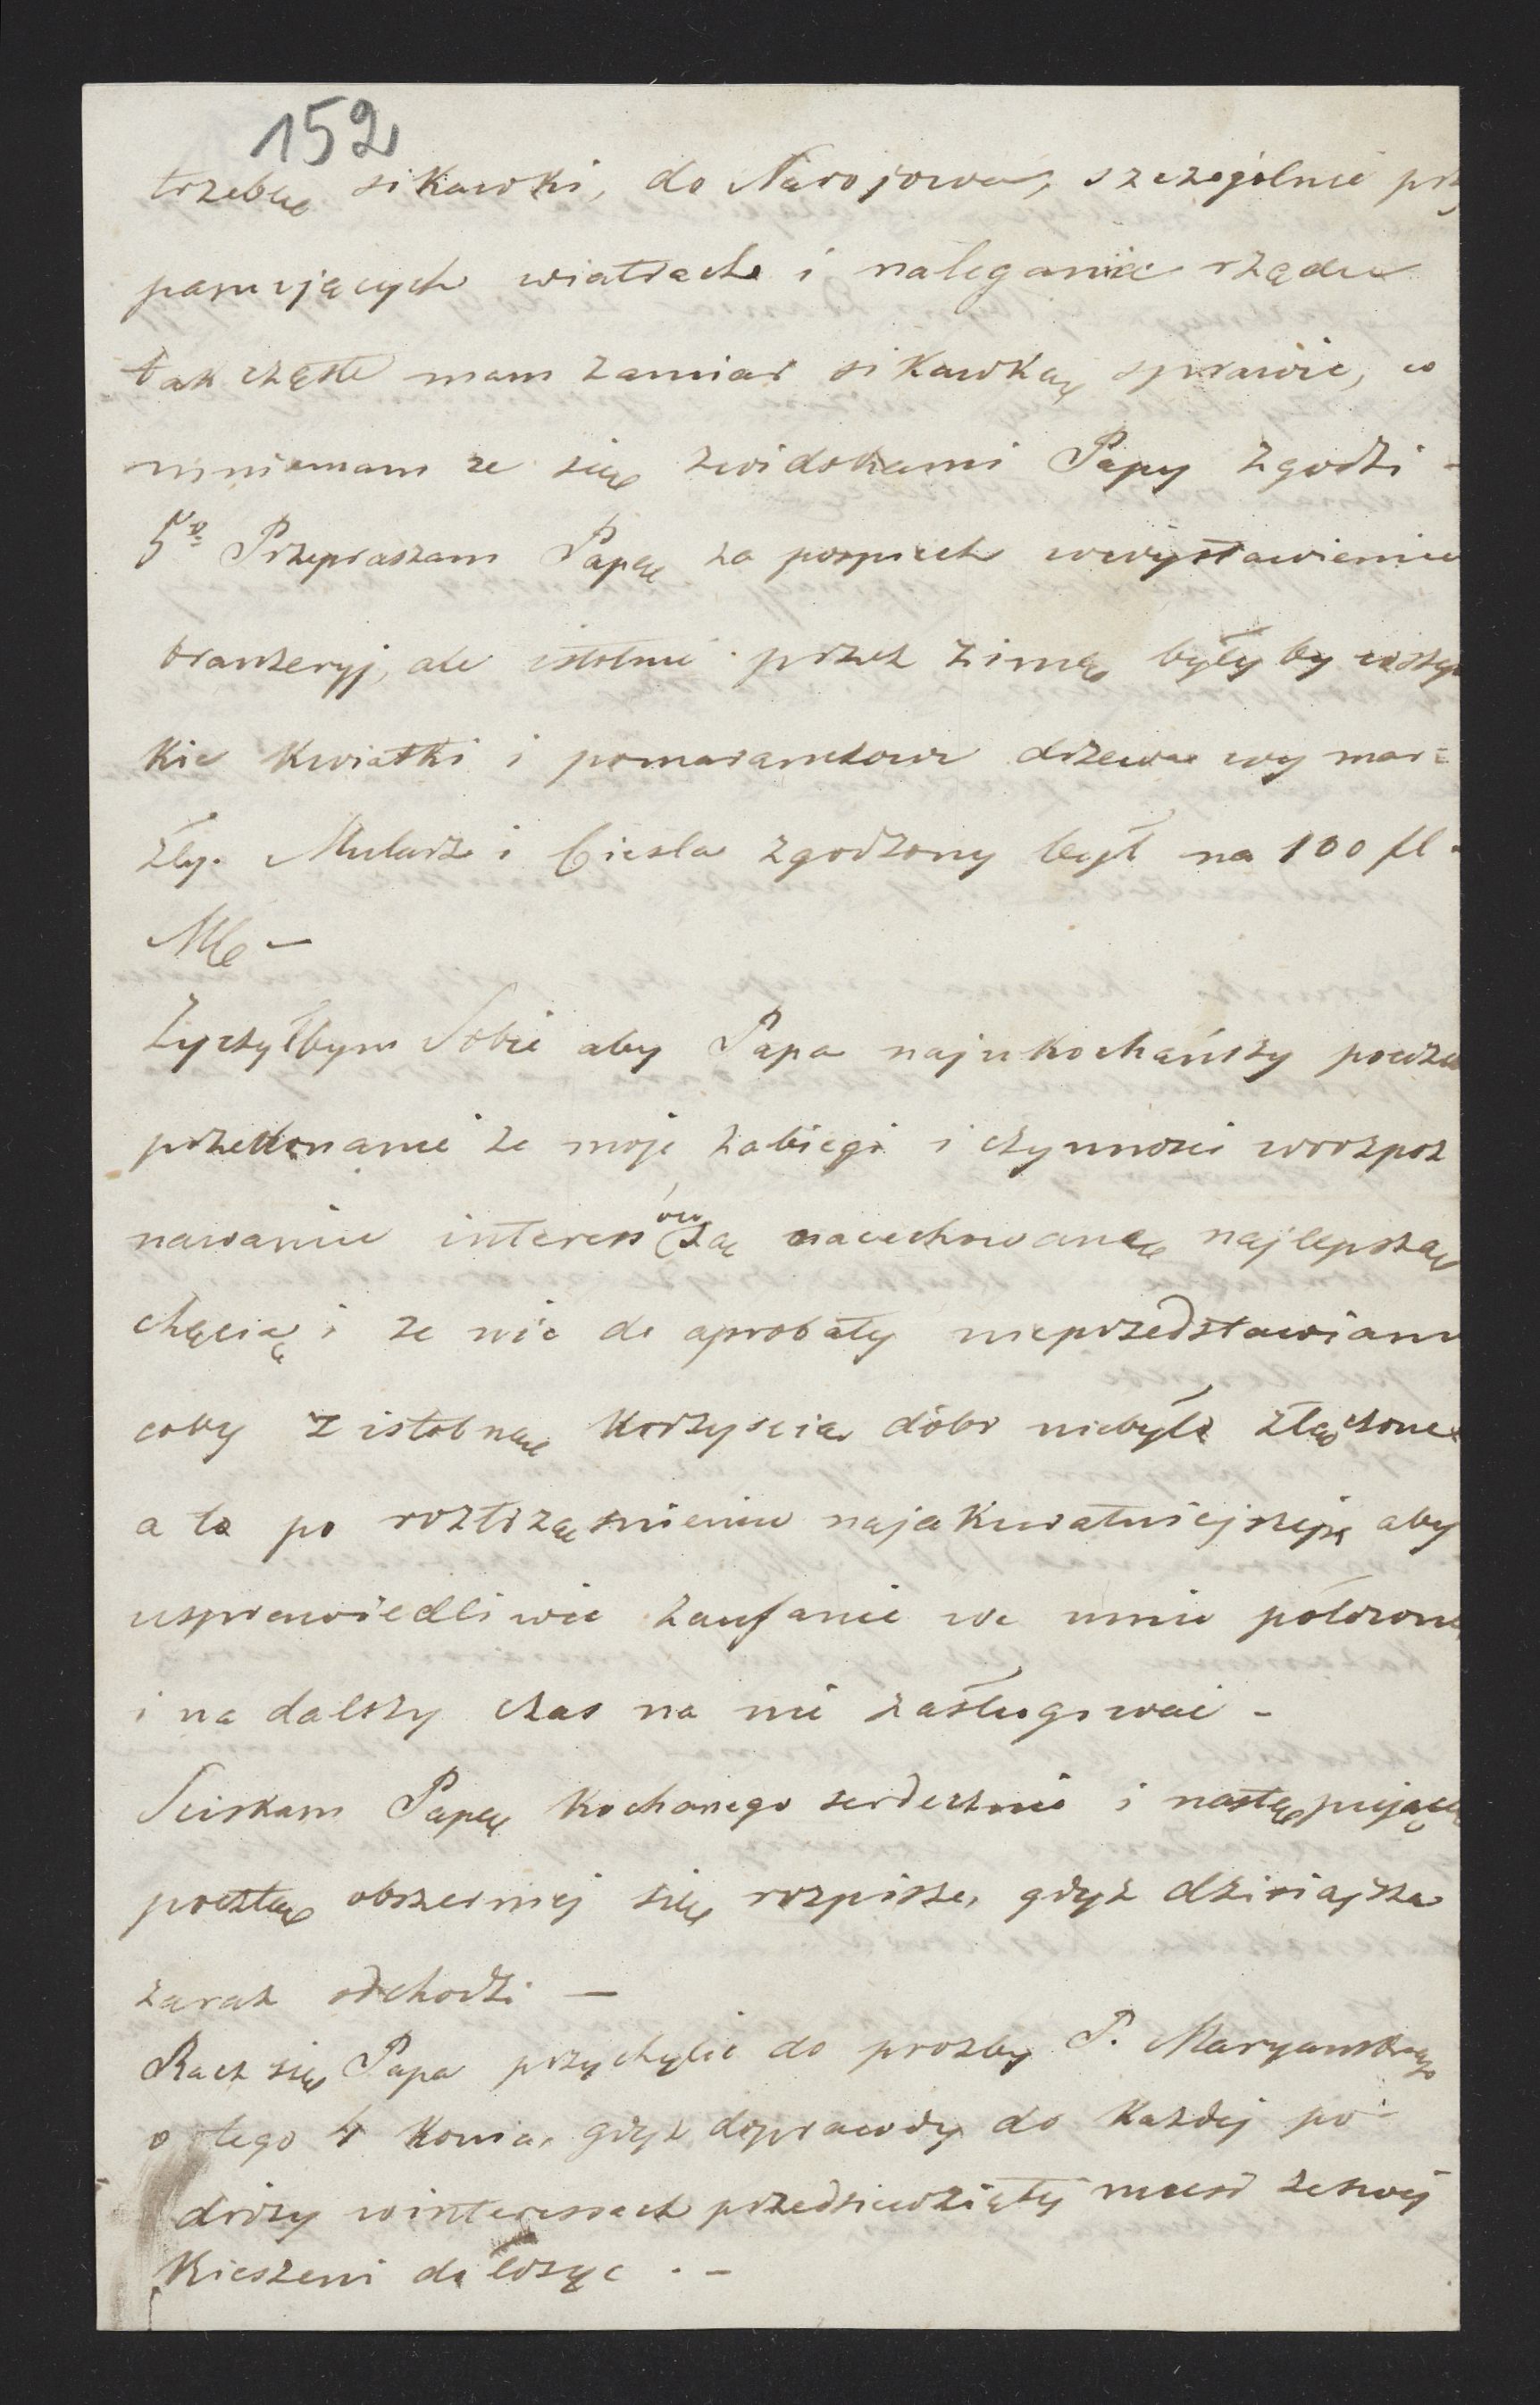 152
trzebę sikawki, do Narojowa, szczególnie prz
panujących wiatrach i naleganiu rządu
tak częste mam zamiar sikawkę sprawić, co
mniemam ze się zwidokami Papy zgodzi -
5to Przepraszam Papę za pospiech wwystawieniu
oranżeryj, ale istotnie przez zimę byłyby wszys
kie kwiatki i pomarańczowe drzewa wy mar=
zły. Mularz i Ciesla zgodzony był na 100 fl.
Mę –
Życzyłbym Sobie aby Papa najukochańszy powziął
przekonanie ze moje zabiegi i czynnosci wrozpoz
nawaniu interessów są nacechowane najlepszą
chęcią i ze nic do aprobaty nieprzedstawiam
coby z istotną korzyscią dóbr niebyło złączone
a to po roztrząsnieniu najakuratniejszej, aby
usprawiedliwić zaufanie we mnie położone
i na dalszy czas na nie zasługiwać -
Sciskam Papę kochanego serdecznie i następującą
pocztą obszerniej się rozpiszę, gdyż dzisiajsza
zaraz odchodzi —
Racz się Papa przychylić do prozby P. Maryanskiego
o tego 4 konia, gdyż doprawdy do każdej po-
dróży winteressach przedsiewziętej musi zeswej
kieszeni da łożyć . -